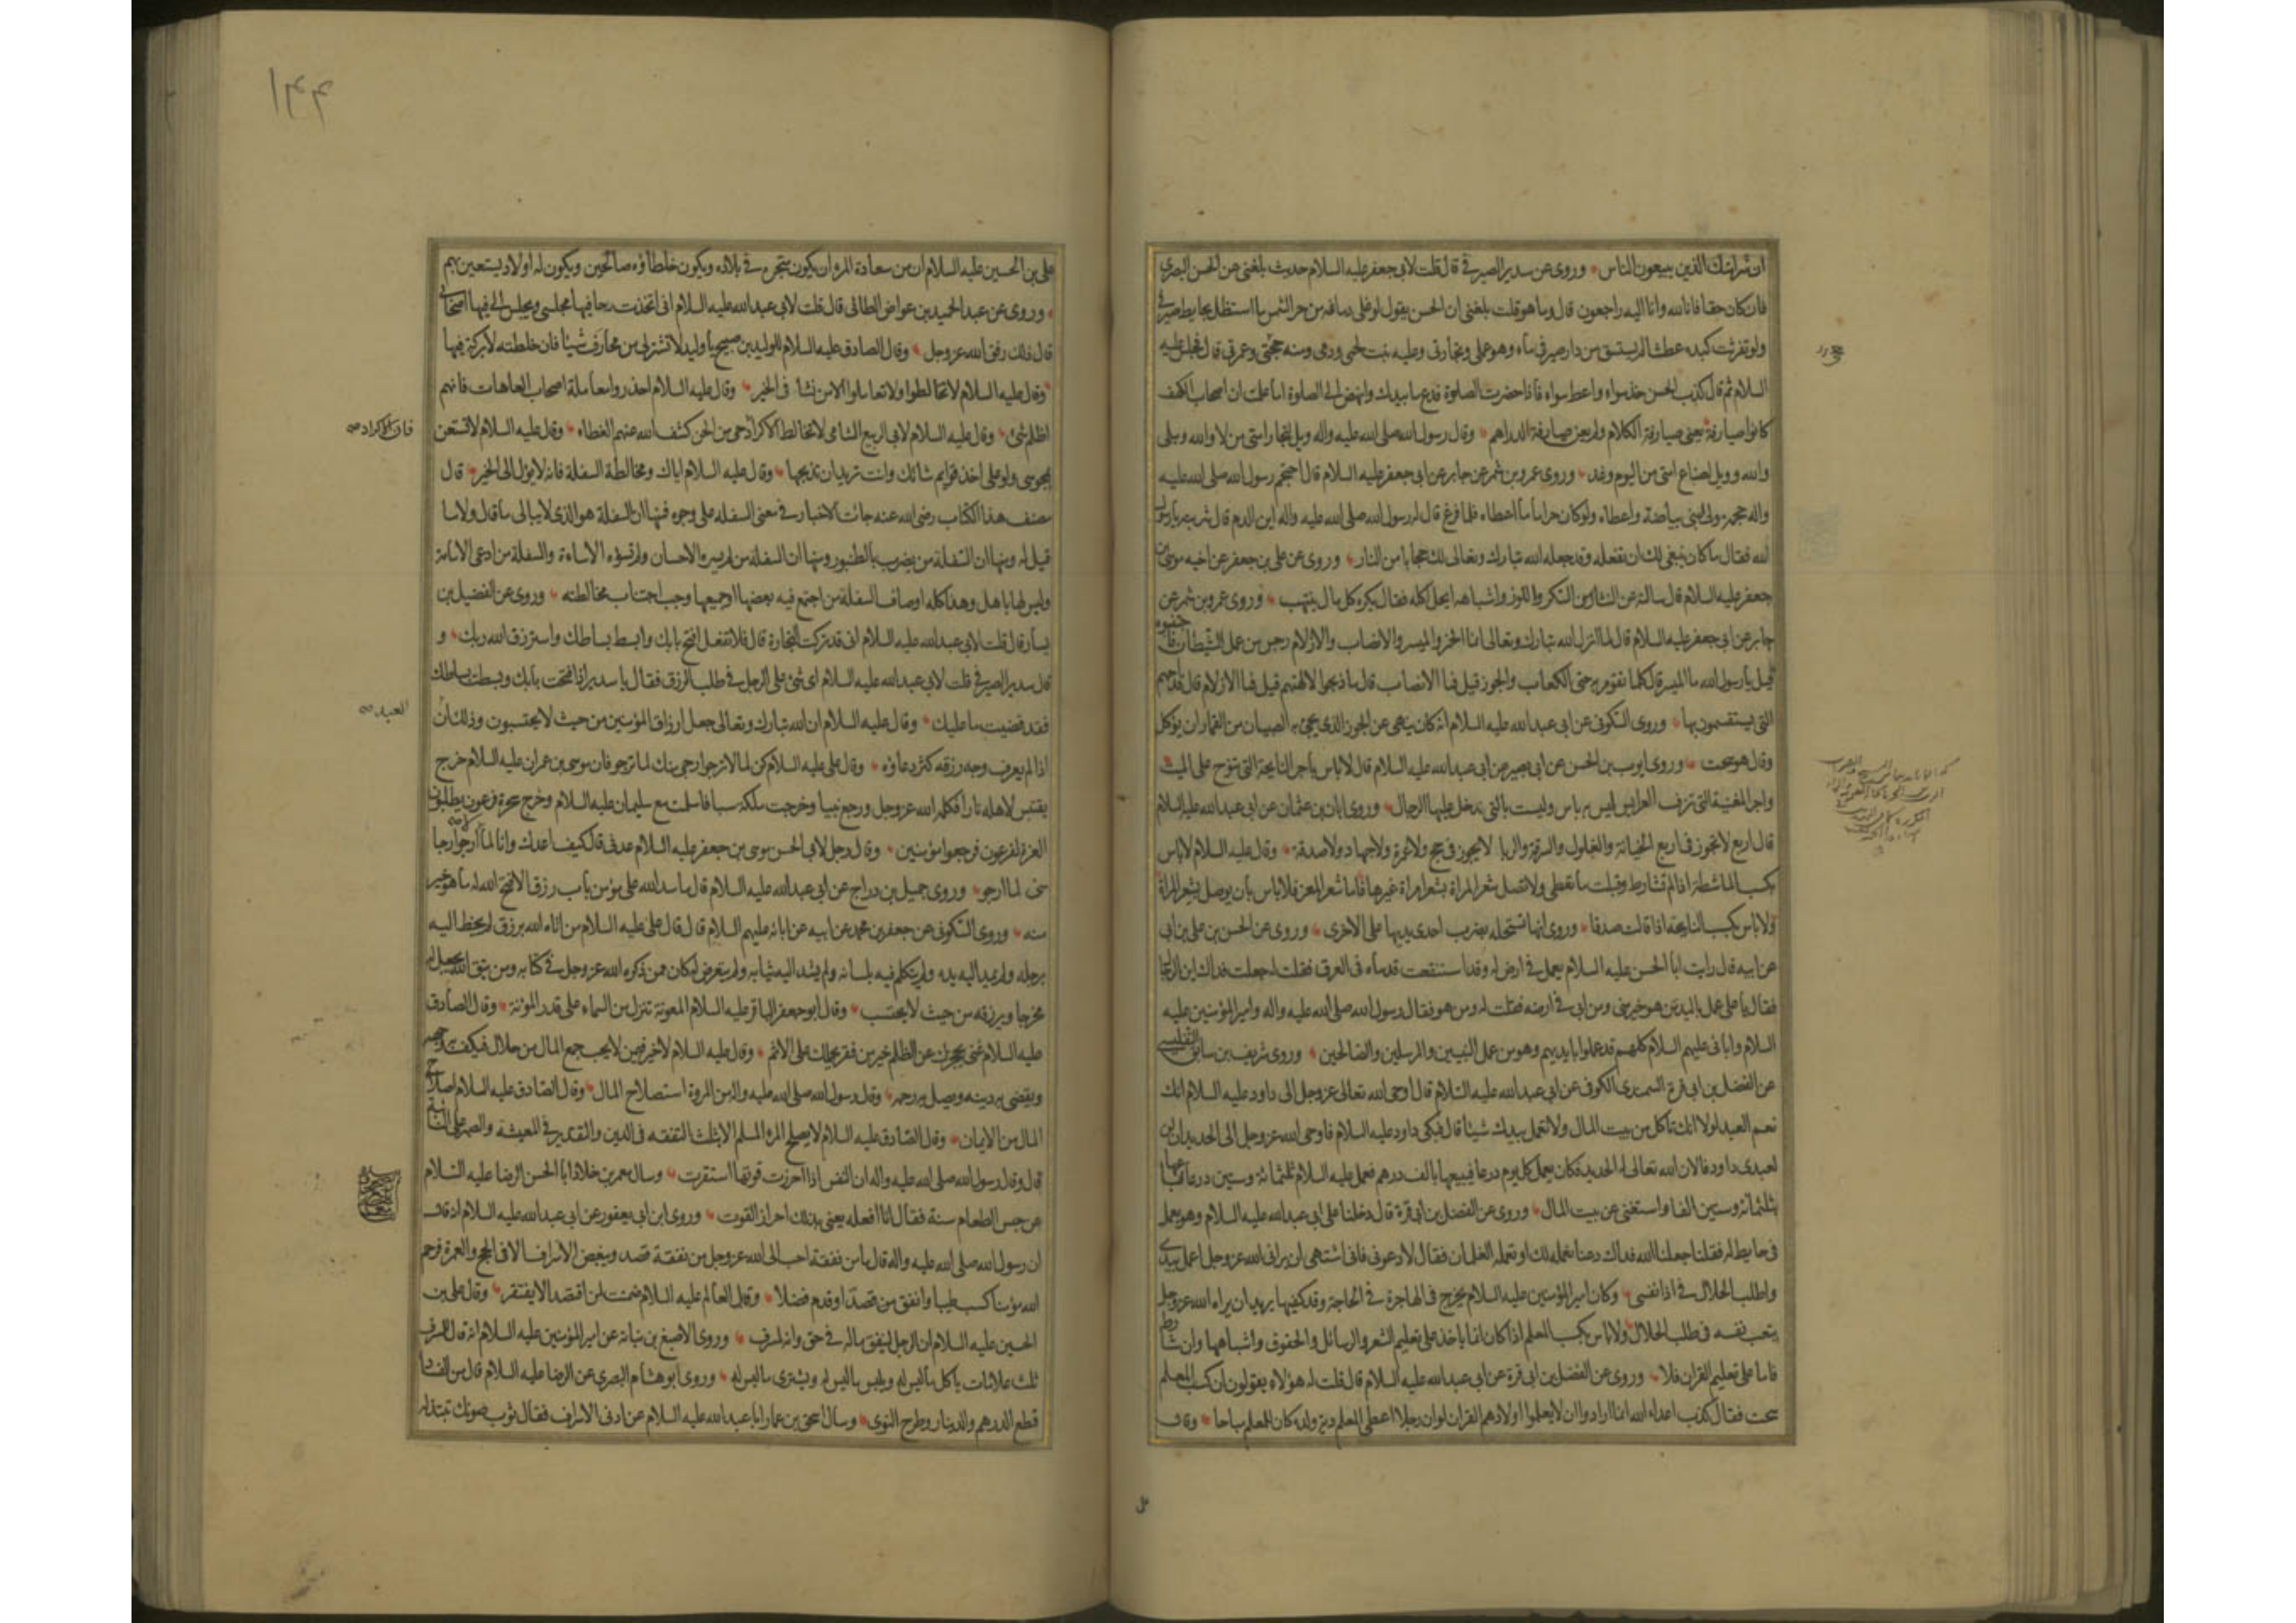 ان شرامتك الذين يبيعون الناس وروى عن سدير الصيرفي قال قلت لابي جعفر عليه السلام حديث بلغني عن الحسن البصري
فان كان حقا فانا لله وانا اليه راجعون قال وما هو قلت بلغني ان الحسن يقول لو غلى دماغه من حر الشمس ما استظل بحايط صيرفي
ولو تفرثت كبده عطشا لم يستسق من دار صيرفي ماء وهو عملي وتجارتي وعليه نبت لحمي ودمي ومنه حجتي وعمرتي قال فجلس عليه
السلام ثم قال كذب الحسن خذ سواء واعط سواء فاذا حضرت الصلوة فدع ما بيدك وانهض الى الصلوة اما علمت ان اصحاب الكهف
كانوا صيارفة يعني صيارفة الكلام ولم يعن صيارفة الدراهم وقال رسول الله صلى الله عليه واله ويل لتجار امتي من لا والله وبلى
والله وويل لصناع امتي من اليوم وغد وروى عمرو بن شمر عن جابر عن ابي جعفر عليه السلام قال احتجم رسول الله صلى الله عليه
واله حجمه مولى لبني بياضة واعطاه ولو كان حراما ما اعطاه فلما فرغ قال له رسول الله صلى الله عليه واله اين الدم قال شربته يا رسول
الله فقال ما كان ينبغي لك ان تفعله وقد جعله الله تبارك وتعالى لك حجابا من النار وروى عن علي بن جعفر عن اخيه موسى بن
جعفر عليه السلام قال سالته عن النثار من السكر واللوز واشباهه ايحل اكله فقال يكره كل ما ينتهب وروى عمرو بن شمر عن
جابر عن ابي جعفر عليه السلام قال لما انزل الله تبارك وتعالى انما الخمر والميسر والانصاب والازلام رجس من عمل الشيطان فاجتنبوه
قيل يا رسول الله ما الميسر قال كلما تقومر به حتى الكعاب والجوز قيل فما الانصاب قال ما ذبحوا لالهتهم قيل فما الازلام قال قداحهم
التي يستقسمون بها وروى السكوني عن ابي عبد الله عليه السلام انه كان ينهى عن الجوز الذي يجئ به الصبيان من القمار ان يؤكل
وقال هو سحت وروى ايوب بن الحسن عن ابي بصير عن ابي عبد الله عليه السلام قال لا باس باجر النايحة التي تنوح على الميت
واجر المغنية التي تزف العرايس ليس به باس وليست بالتي يدخل عليها الرجال وروى ابان بن عثمان عن ابي عبد الله عليه السلام
قال اربع لا تجوز في اربع الخيانة والغلول والسرقة والربا لا يجوز في حج ولا عمرة ولا جهاد ولا صدقة وقال عليه السلام لا باس
بكسب الماشطة اذا لم تشارط وقبلت ما تعطى ولا تصل شعر المراة بشعر امراة غيرها فاما شعر المعز فلا باس بان يوصل بشعر المراة
ولا باس بكسب النايحة اذا قالت صدقا وروى انها تستحله بضرب احدى يديها على الاخرى وروى عن الحسن بن علي بن ابي
عن ابيه قال رايت ابا الحسن عليه السلام يعمل في ارض له وقد استنقعت قدماه في العرق فقلت له جعلت فداك اين الرجال
فقال يا علي عمل باليد من هو خير مني ومن ابي في ارضه فقلت له ومن هو فقال رسول الله صلى الله عليه واله وامير المؤمنين عليه
السلام وابائي عليهم السلام كلهم قد عملوا بايديهم وهو من عمل النبيين والمرسلين والصالحين وروى شريف بن سابق التفليسي
عن الفضل بن ابي قرة السمندي الكوفي عن ابي عبد الله عليه السلام قال اوحى الله تعالى عز وجل الى داود عليه السلام انك
نعم العبد لولا انك تاكل من بيت المال ولا تعمل بيدك شيئا قال فبكى داود عليه السلام فاوحى الله عز وجل الى الحديد ان لن
لعبدي داود فالان الله تعالى له الحديد فكان يعمل كل يوم درعا فيبيعها بالف درهم فعمل عليه السلام ثلثمائة وستين درعا فباعها
بثلثمائة وستين الفا واستغنى عن بيت المال وروى عن الفضل بن ابي قرة قال دخلنا على ابي عبد الله عليه السلام وهو يعمل
في حايط له فقلنا جعلنا الله فداك دعنا نعمله لك او تعمله الغلمان فقال لا دعوني فاني اشتهي ان يراني الله عز وجل اعمل بيدي
واطلب الحلال في اذا نفسي وكان امير المؤمنين عليه السلام يخرج في الهاجرة في الحاجة وقد كفيها يريد ان يراه الله عز وجل
يتعب نفسه في طلب الحلال ولا باس بكسب المعلم اذا كان انما ياخذ على تعليم الشعر والرسائل والحقوق واشباهها وان شارط
فاما على تعليم القران فلا وروى عن الفضل بن ابي قرة عن ابي عبد الله عليه السلام قال قلت له هؤلاء يقولون ان كسب المعلم
سحت فقال كذب اعداء الله انما ارادوا ان لا يعلموا اولادهم القران لو ان رجلا اعطى المعلم دية ولده كان للمعلم مباحا وقال
١٤٤
علي بن الحسين عليه السلام ان من سعادة المرء ان يكون متجره في بلاده ويكون خلطاؤه صالحين ويكون له اولاد يستعين بهم
وروى عن عبد الحميد بن عواض الطائي قال قلت لابي عبد الله عليه السلام اني اتخذت رحا فيها مجلسي ويجلس الي فيها اصحابي
قال ذلك رفق الله عز وجل وقال الصادق عليه السلام للوليد بن صبيح يا وليد لا تشتر لي من محارف شيئا فان خلطته لا بركة فيها
وقال عليه السلام لا تخالطوا ولا تعاملوا الا من نشأ في الخير وقال عليه السلام احذروا معاملة اصحاب العاهات فانهم
اظلم شئ وقال عليه السلام لابي الربيع الشامي لا تخالط الاكراد حي من الجن كشف الله عنهم الغطاء وقال عليه السلام لا تستعن
فان الاكراد صح
بمجوسي ولو على اخذ قوايم شاتك وانت تريد ان تذبحها وقال عليه السلام اياك ومخالطة السفلة فانه لا يؤل الى الخير قال
مصنف هذا الكتاب رضي الله عنه جائت الاخبار في معنى السفله على وجوه فمنها ان السفلة هو الذي لا يبالي ما قال ولا ما
قيل له ومنها ان السفلة من يضرب بالطنبور ومنها ان السفلة من لم يسره الاحسان ولم تسؤه الاساءة والسفلة من ادعى الامامة
وليس لها باهل وهذا كله اوصاف السفلة من اجتمع فيه بعضها او جميعها وجب اجتناب مخالطته وروى عن الفضيل بن
يسار قال قلت لابي عبد الله عليه السلام اني قد تركت التجارة قال فلا تفعل افتح بابك وابسط بساطك واسترزق الله ربك و
قال سدير الصيرفي قلت لابي عبد الله عليه السلام اي شئ على الرجل في طلب الرزق فقال يا سدير اذا فتحت بابك وبسطت بساطك
فقد قضيت ما عليك وقال عليه السلام ان الله تبارك وتعالى جعل ارزاق المؤمنين من حيث لا يحتسبون وذلك ان
العبد صح
اذا لم يعرف وجه رزقه كثر دعاؤه وقال علي عليه السلام كن لما لا ترجوا رجى منك لما ترجو فان موسى بن عمران عليه السلام خرج
يقتبس لاهله نارا فكلمه الله عز وجل ورجع نبيا وخرجت ملكة سبا فاسلمت مع سليمان عليه السلام وخرج سحرة فرعون يطلبون
العزة لفرعون فرجعوا مؤمنين وقال رجل لابي الحسن موسى بن جعفر عليه السلام عدني قال كيف اعدك وانا لما لا ارجوا ارجا
مني لما ارجو وروى جميل بن دراج عن ابي عبد الله عليه السلام قال ما سد الله على مؤمن باب رزق الا فتح الله له ما هو خير
منه وروى السكوني عن جعفر بن محمد عن ابيه عن ابائه عليهم السلام قال قال علي عليه السلام من اتاه الله برزق لم يخط اليه
برجله ولم يمد اليه يده ولم يتكلم فيه بلسانه ولم يشد اليه ثيابه ولم يتعرض له كان ممن ذكره الله عز وجل في كتابه ومن يتق الله يجعل له
مخرجا ويرزقه من حيث لا يحتسب وقال ابو جعفر الباقر عليه السلام المعونة تنزل من السماء على قدر المؤنة وقال الصادق
عليه السلام غنى يحجزك عن الظلم خير من فقر يحملك على الاثم وقال عليه السلام لا خير فيمن لا يحب جمع المال من حلال فيكف به وجهه
ويقضي به دينه ويصل به رحمه وقال رسول الله صلى الله عليه واله من المروة استصلاح المال وقال الصادق عليه السلام اصلاح
المال من الايمان وقال الصادق عليه السلام لا يصلح المرء المسلم الا بثلث التفقه في الدين والتقدير في المعيشة والصبر على النائبة
قال وقال رسول الله صلى الله عليه واله ان النفس اذا احرزت قوتها استقرت وسال معمر بن خلاد ابا الحسن الرضا عليه السلام
عن حبس الطعام سنة فقال انا افعله يعني بذلك احراز القوت وروى ابن ابي يعفور عن ابي عبد الله عليه السلام انه قال
ان رسول الله صلى الله عليه واله قال ما من نفقة احب الى الله عز وجل من نفقة قصد ويبغض الاسراف الا في الحج والعمرة فرحم
الله مؤمنا كسب طيبا وانفق من قصد او قدم فضلا وقال العالم عليه السلام ضمنت لمن اقتصد الا يفتقر وقال علي بن
الحسين عليه السلام ان الرجل لينفق ماله في حق وانه لمسرف وروى الاصبغ بن نباتة عن امير المؤمنين عليه السلام انه قال للمسرف
ثلث علامات ياكل ما ليس له ويلبس ما ليس له ويشتري ما ليس له وروى ابو هشام البصري عن الرضا عليه السلام قال من الفساد
قطع الدرهم والدينار وطرح النوى وسال اسحق بن عمار ابا عبد الله عليه السلام عن ادنى الاسراف فقال ثوب صونك تبتذله